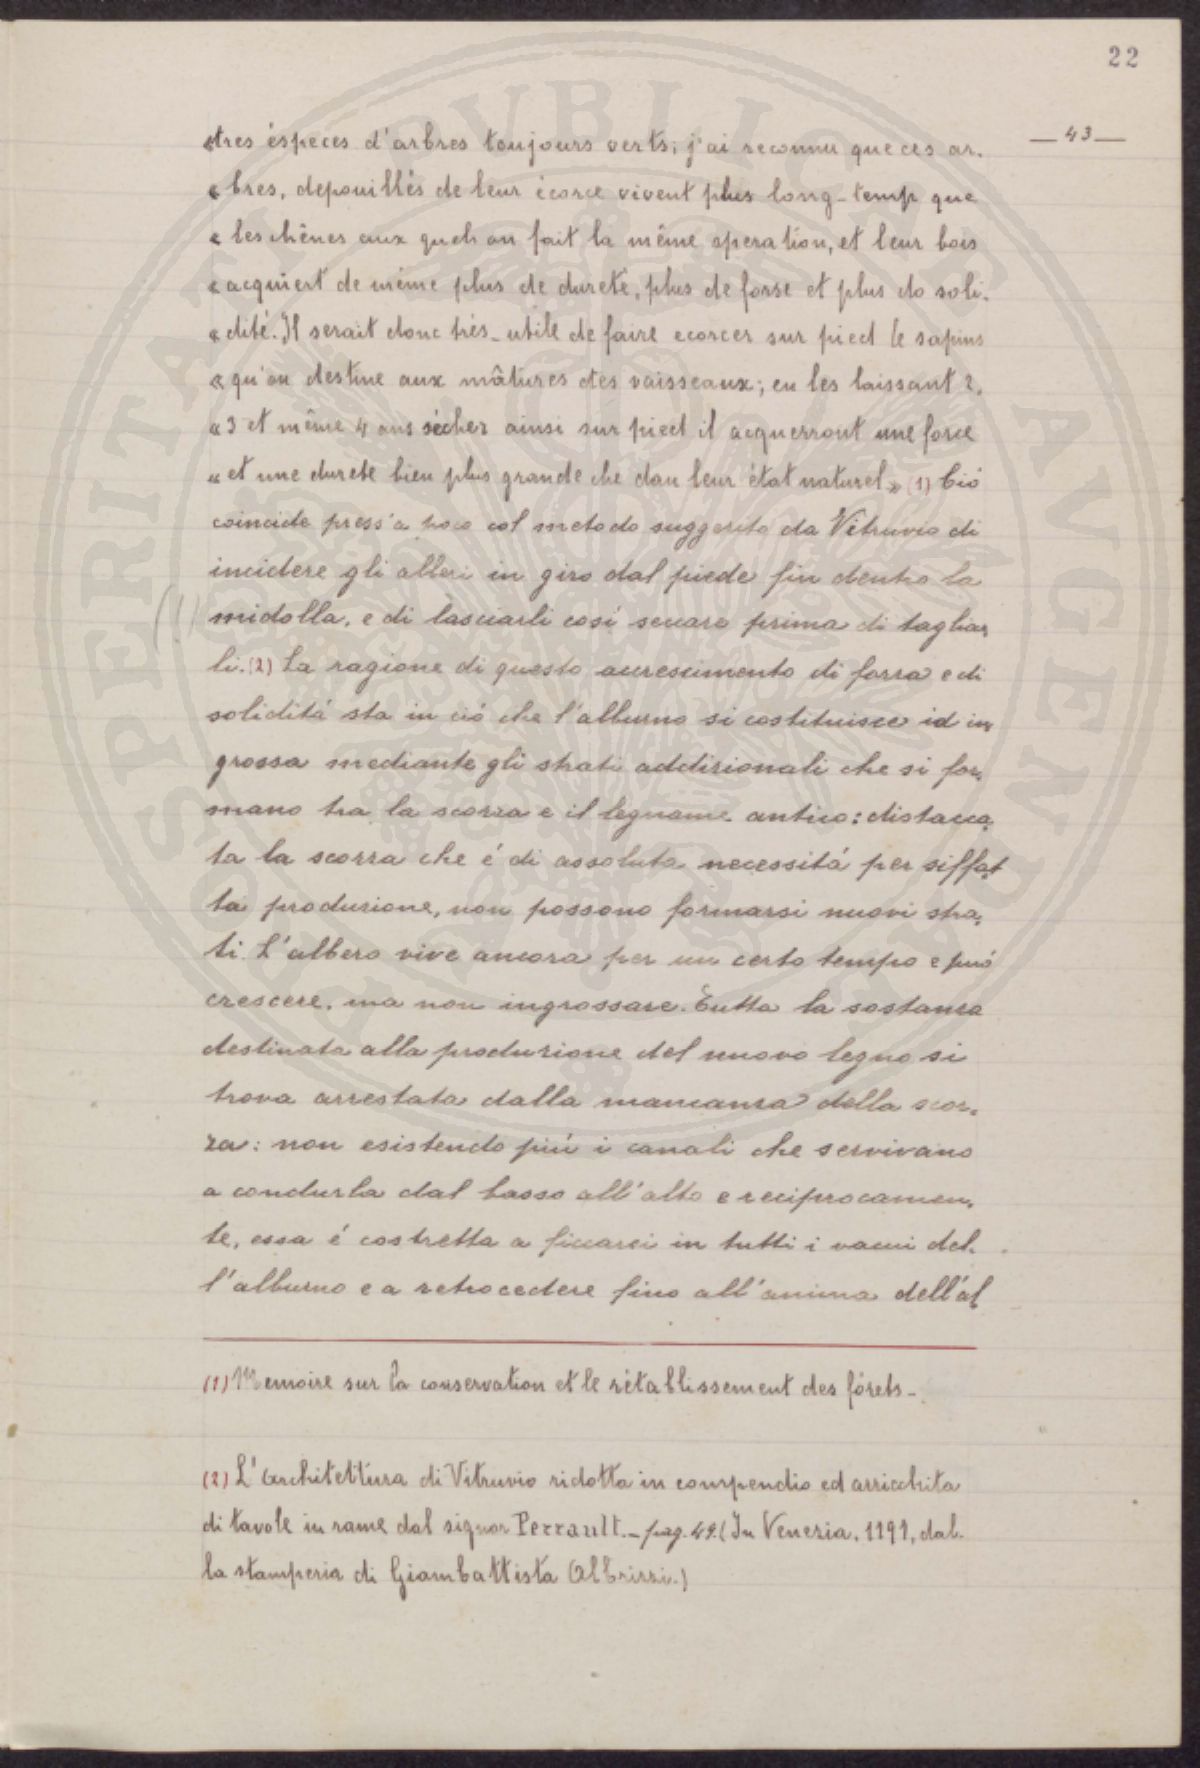 22
— 43 —
«tres éspeces d'arbres toujours verts; j'ai reconnu que ces ar.
« bres, depouillés de leur écorce vivent plus long-temp que
« les chênes aux quels on fait la même operation, et leur bois
« acquiert de même plus de dureté, plus de forse et plus do soli.
« dité. Il serait donc très-utile de faire ecorcer sur pied le sapins
« qu'on destine aux mâtures des vaisseaux; en les laissant 2,
« 3 et même 4 ans sécher ainsi sur pied il acquerront une force
« et une dureté bien plus grande che dan leur état naturel» (1) Ció
coincide press'a poco col metodo suggerito da Vitruvio di
incidere gli alberi in giro dal piede fin dentro la
midolla, e di lasciarli cosí seccare prima di tagliar
li. (2) La ragione di questo accrescimento di forza e di
soliditá sta in ció che l'alburno si costituisce id in
grossa mediante gli strati addizionali che si for.
mano tra la scorza e il legname antico: distacca
ta la scorza che é di assoluta necessitá per siffat
ta produzione, non possono formarsi nuovi stra.
ti. L'albero vive ancora per un certo tempo e puó
crescere, ma non ingrossare. Tutta la sostanza
destinata alla produzione del nuovo legno si
trova arrestata dalla mancanza della scor.
za: non esistendo piú i canali che servivano
a condurla dal basso all'alto e reciprocamen.
te, essa é costretta a ficcarsi in tutti i vacui del.
l'alburno e a retrocedere fino all'anima dell'al
(1) Memoire sur la conservation et le rétablissement des fórets-
(2) L'Architettura di Vitruvio ridotta in compendio ed arricchita
di tavole in rame dal signor Perrault.- pag. 49. (In Venezia, 1191, dal.
la stamperia di Giambattista Albrizzi.)
PROSPERITATI PVBLICAE AVGENDAE